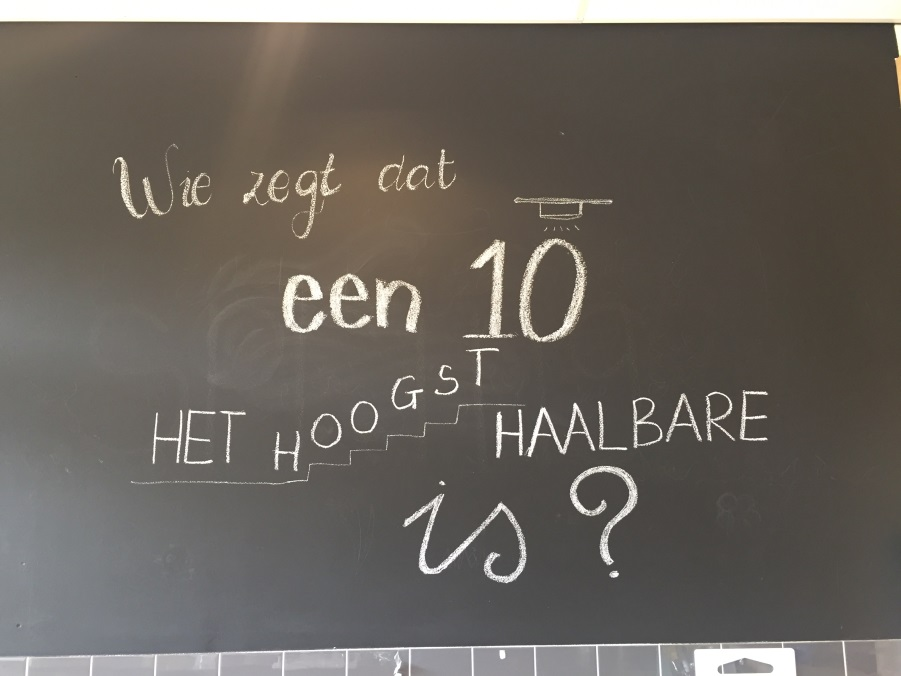 Wie zegt dat
een 10
HET HOOGST HAALBARE
is?